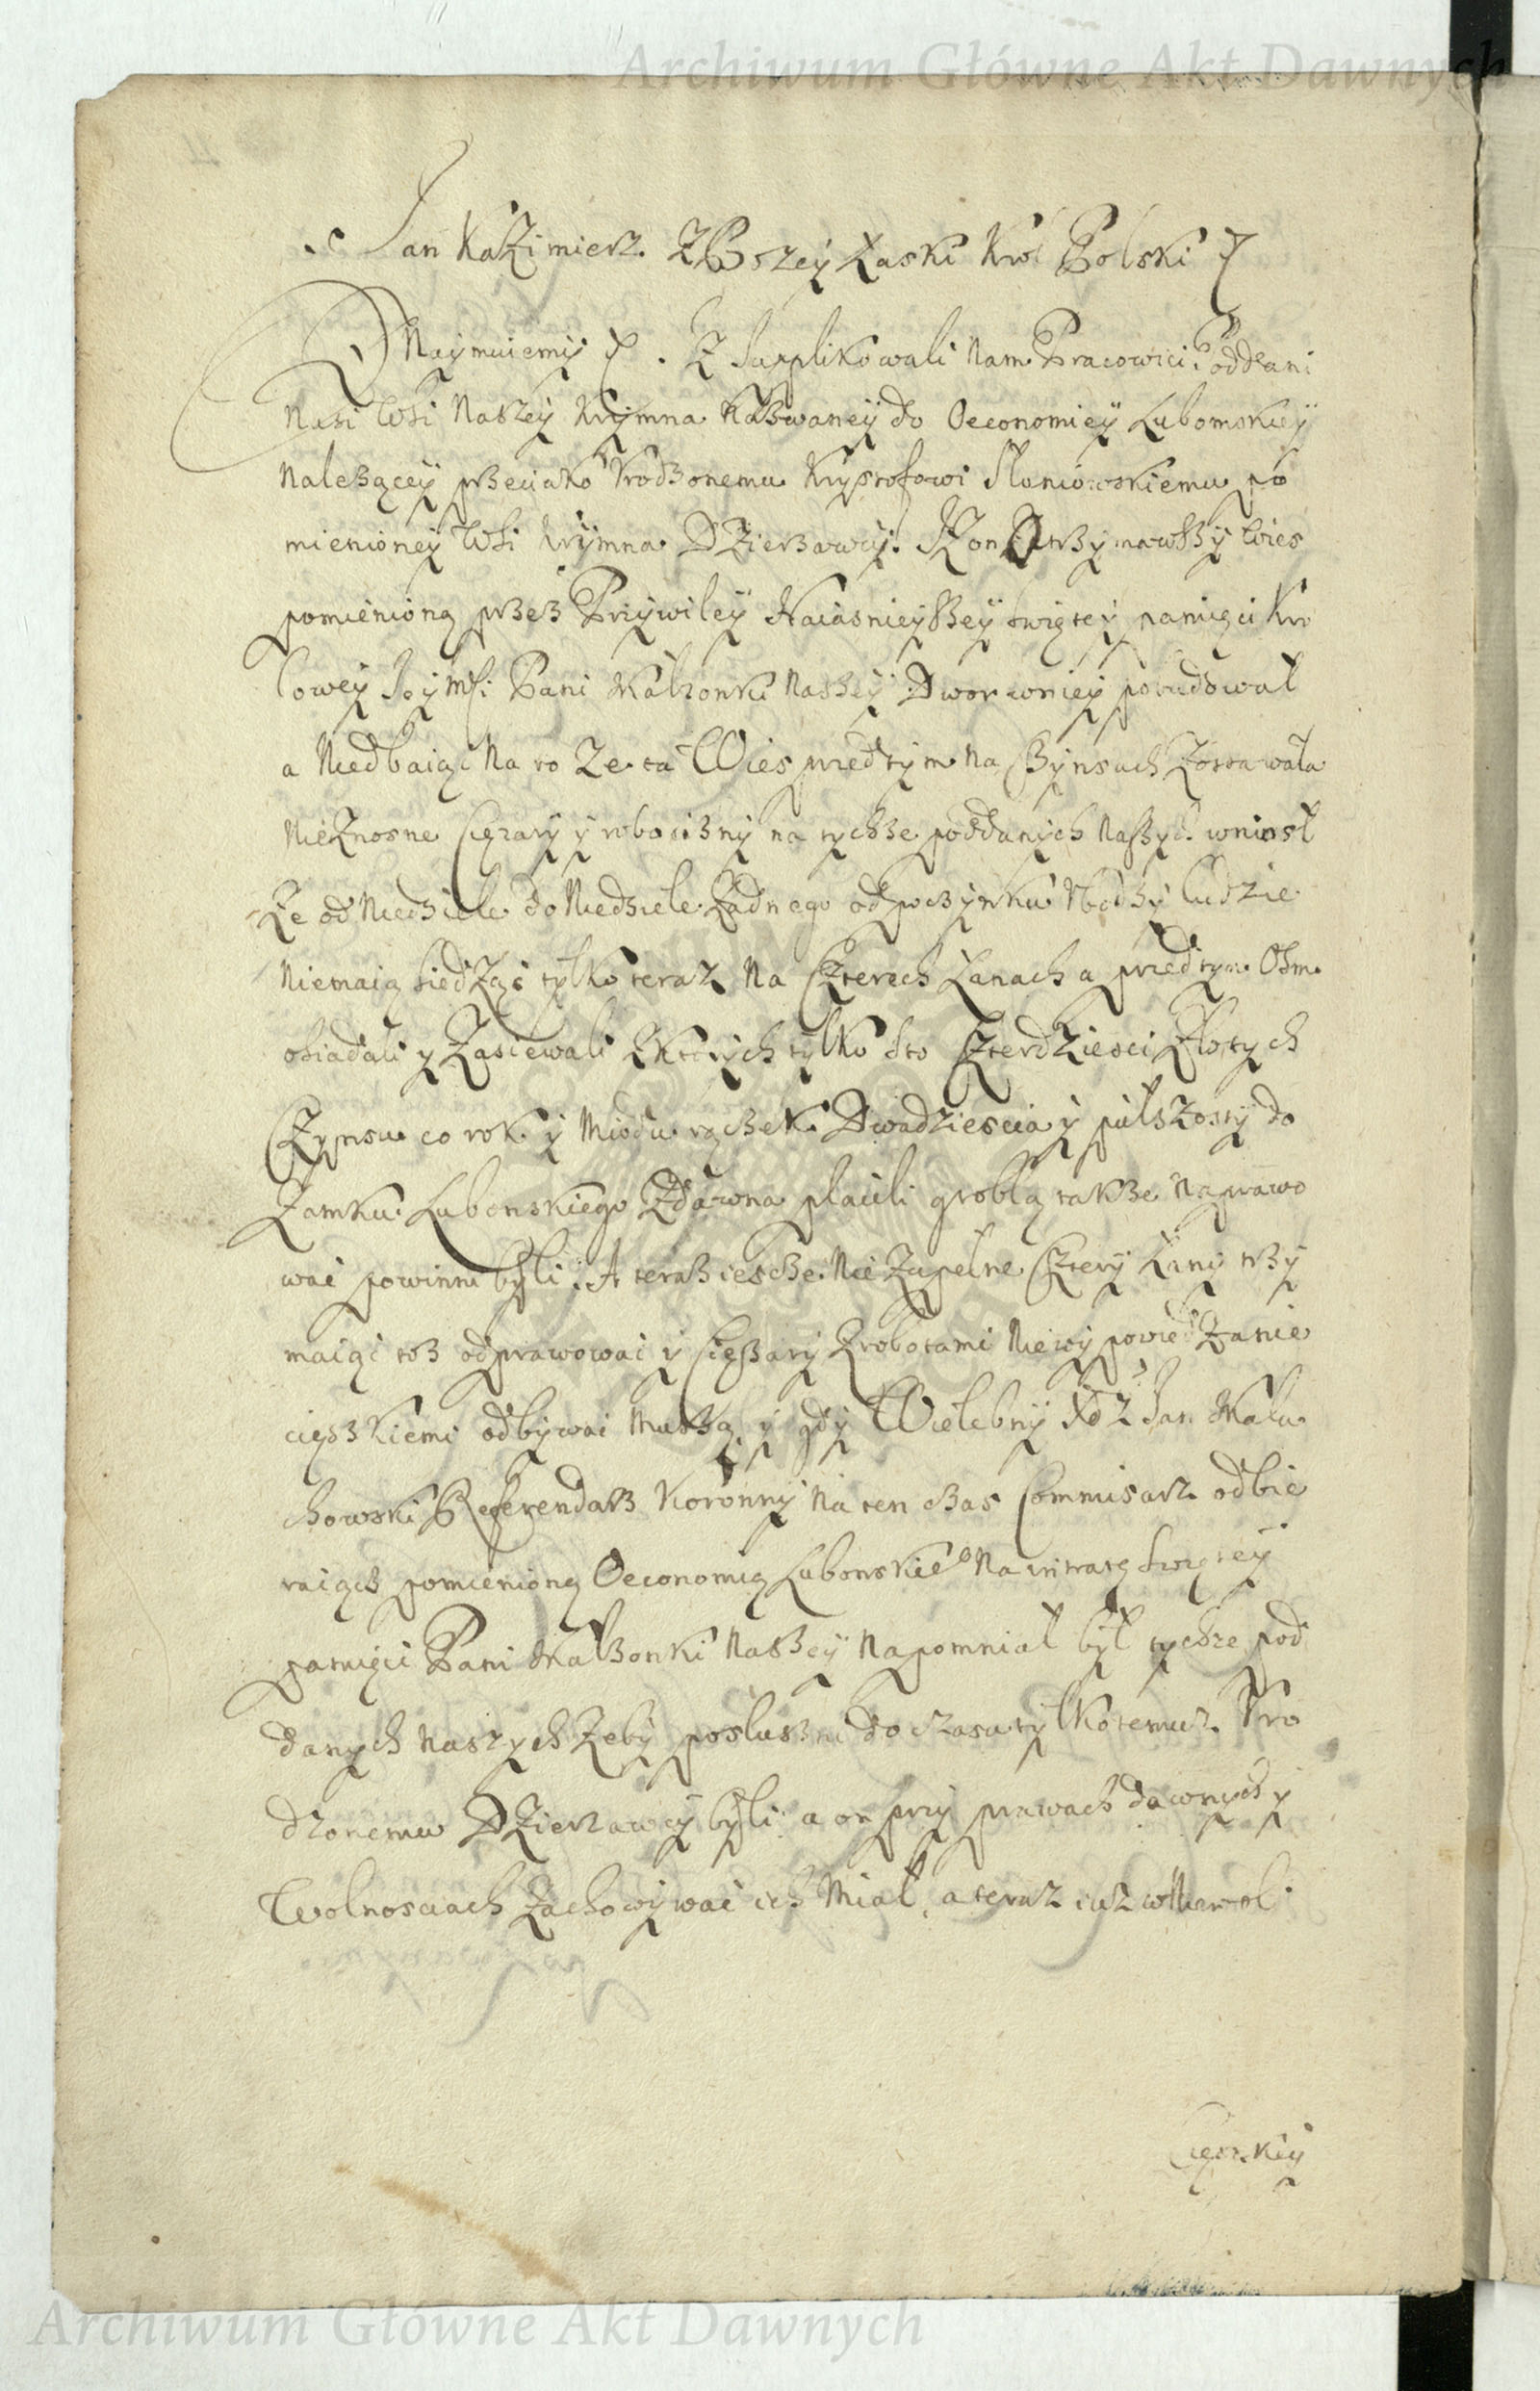 Archiwum Główne Akt Dawnych
Jan Kazimierz. Z Bozey Łaski Krol Polski
Oznaymuiemy. Iz Supplikowali Nam Pracowici Poddani
Nasi Wsi Naszey Krymna Nazwaney do Oeconomiey Lubomskiey
Należącey przeciwko Urodzonemu Krysztofowi Słuniowskiemu po
mienioney Wsi Krymna Dzierzawcy. Iż on otrzymawszy Wies
pomienioną przez Przywiley Naiasnieyszey swiętey pamięci Kro
lowey Jey Mści Pani Małzonki Naszey Dwor w niey pobudował
a Niedbaiąc Na to Ze ta Wies przedtym Na Czynsach Zostawała
Nieznosne Cięzary y robocizny na tychze poddanych Naszych wniosł
Ze od Niedziele do Niedziele Zadnego odpoczynku Ubodzy ludzie
Niemaią siedząc tylko teraz Na Czterech Łanach a przedtym Osm
osiadali y Zasiewali Zktorych tylko sto Czterdziesci Złotych
Czynsu co rok y Miodu rączek Dwadziescia y pułszosty do
Zamku Lubomskiego Zdawna płacili groblą takze Naprawo
wac powinni byli. A teraz iescze Nie Zupełne Cztery Łany trzy
maiąc toz odprawowac y Cięzary Zrobotami Niewypowiedzanie
cięszkiemi odbywac Muszą, y gdy Wielebny Xdz Jan Mała
chowski Referendarz Koronny Na ten czas Commisarz odbie
raiącz pomienioną Oeconomią Lubomskie Na intratę Swiętey
pamięci Pani Małzonki Naszey Napomniał był tychze pod
danych Naszych Zeby posłuszni do czasu tylko temuz Uro
dzonemu Dzierzawcy byli a on przy prawach dawnych y
Wolnosciach Zachowywac ich Miał, a teraz iuz w Niewoli
Cięszkiey
Archiwum Główne Akt Dawnych